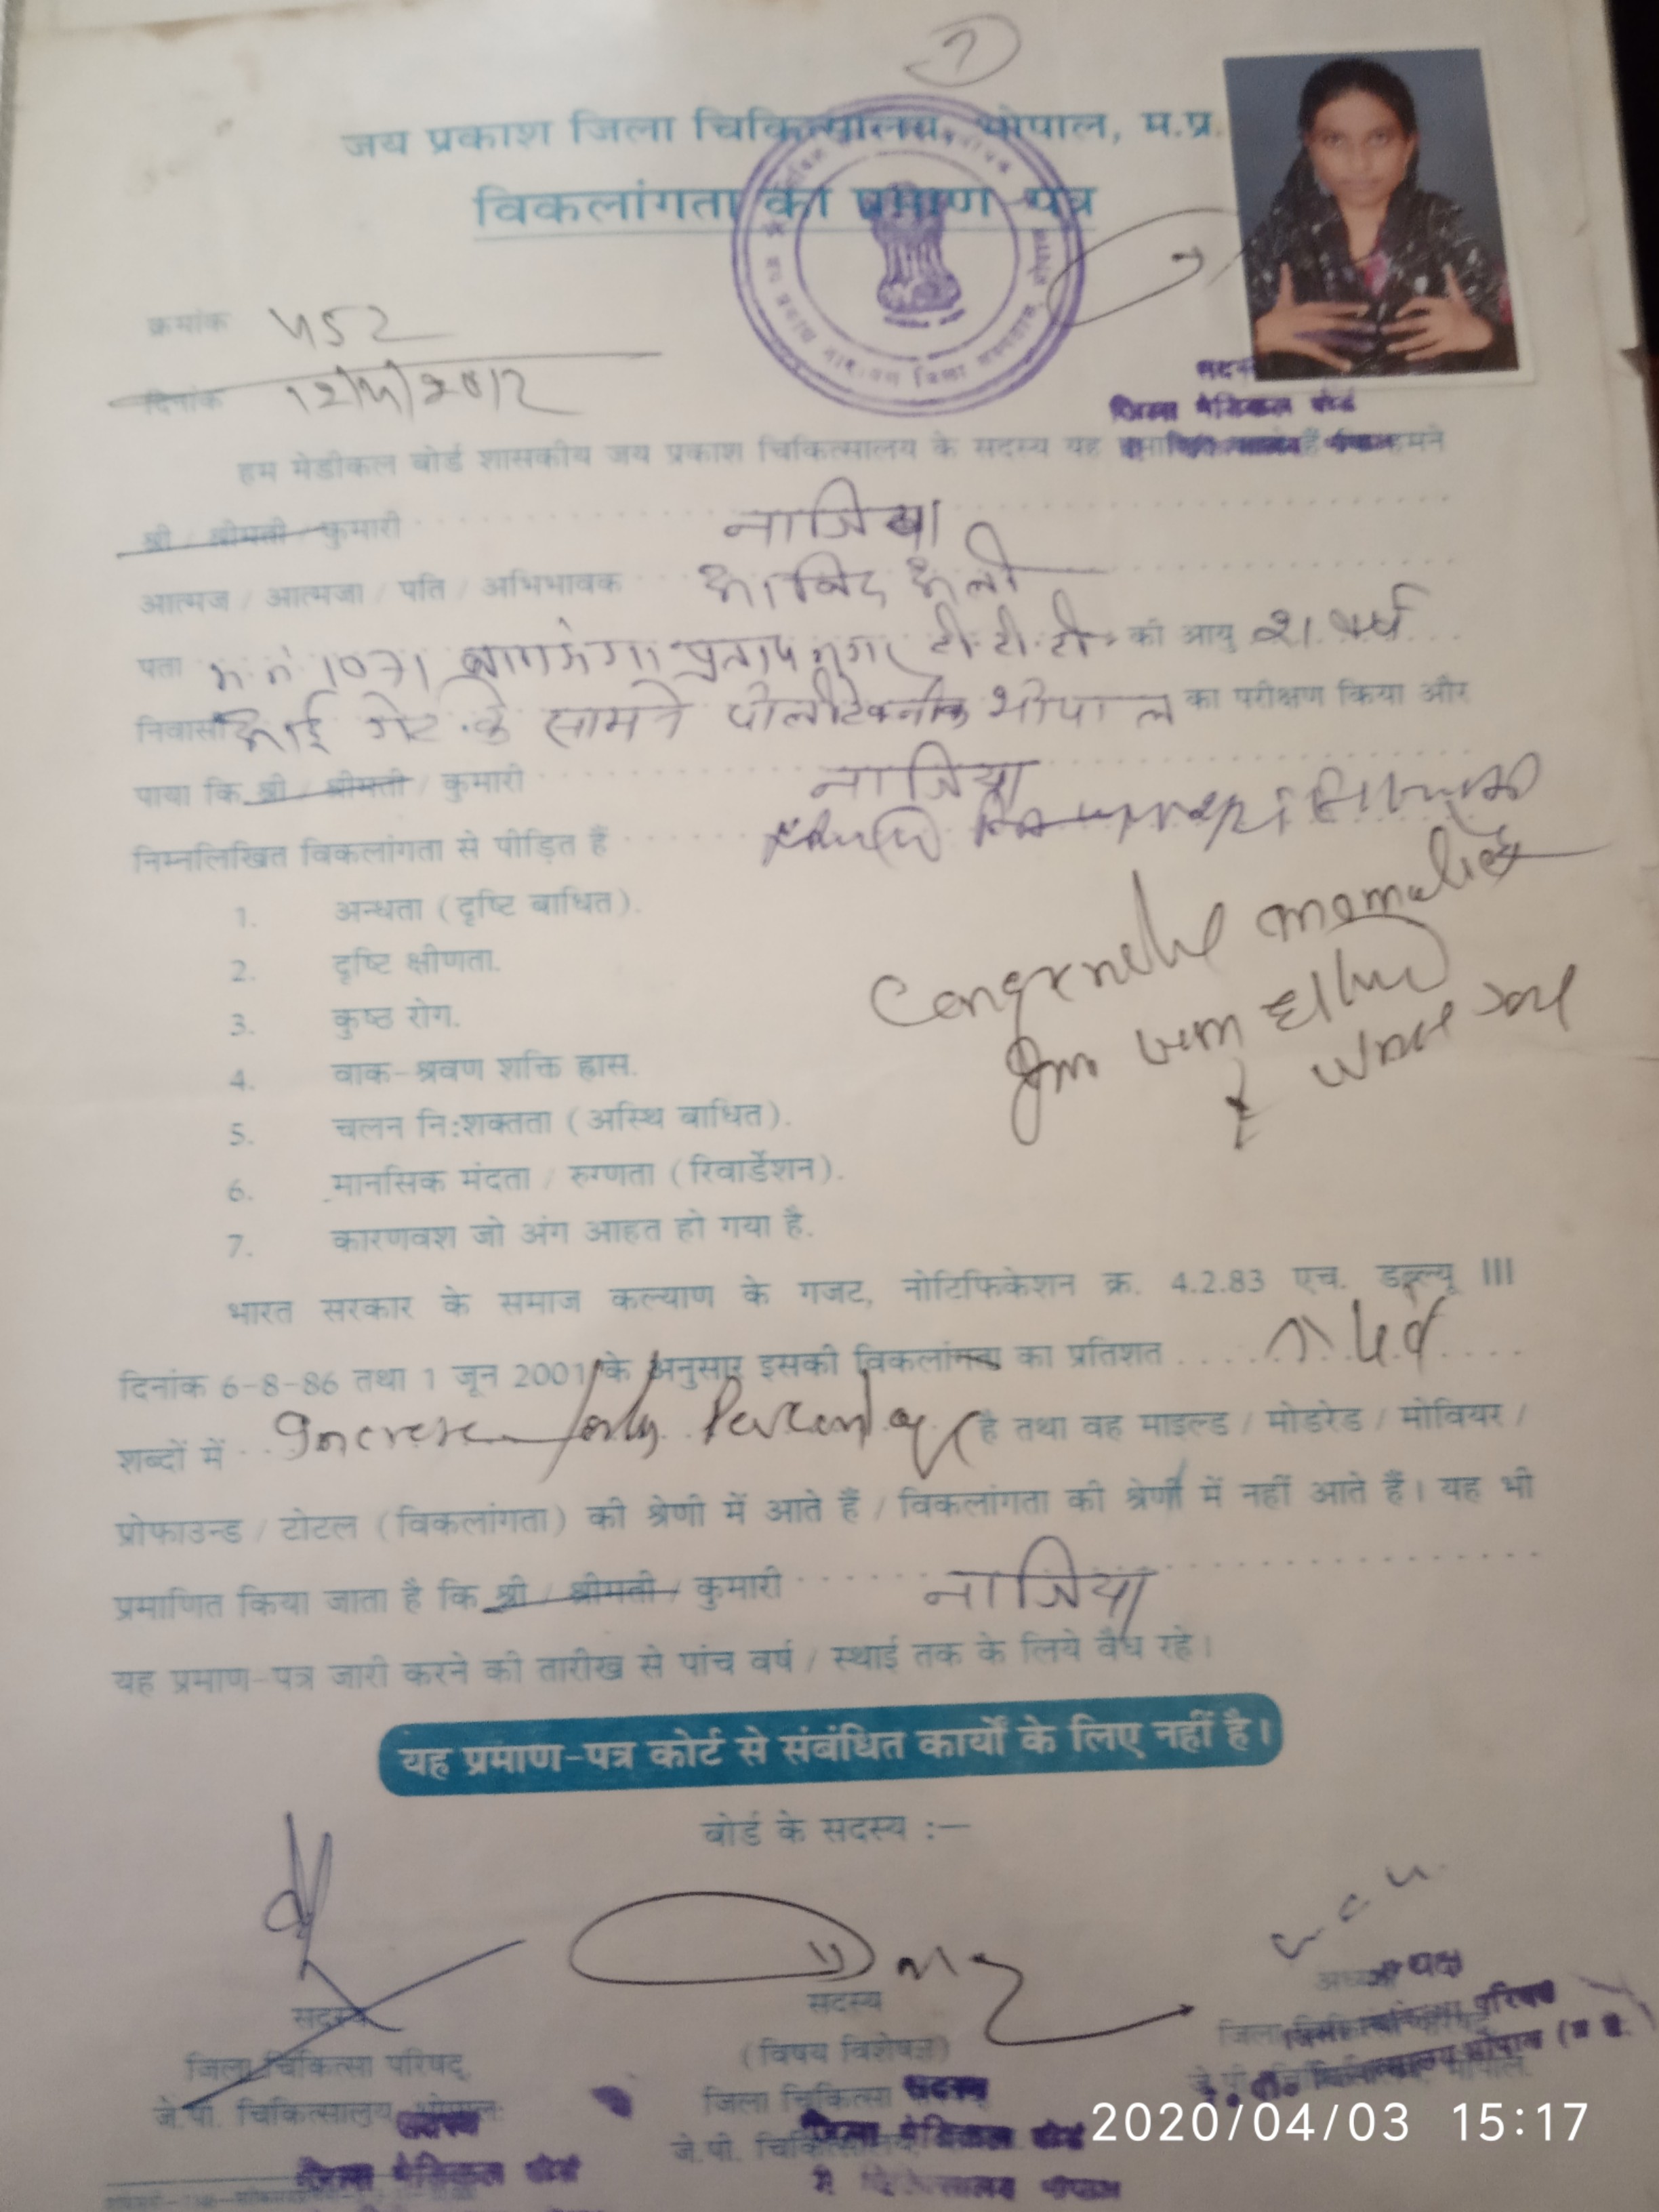 जय प्रकाश जिला चिकित्सालय, भोपाल, म.प्र.
विकलांगता का प्रमाण-पत्र
क्रमांक 452
दिनांक
सदस्य
जिला मेडिकल बोर्ड
हम मेडीकल बोर्ड शासकीय जय प्रकाश चिकित्सालय के सदस्य यह हमने
श्री / श्रीमती / कुमारी नाजिया
आत्मज / आत्मजा / पति / अभिभावक आबिद अली
पता म.नं 1071 बाणगंगा प्रताप नगर टी.टी.टी. की आयु 21 वर्ष
निवासी आई गेट के सामने पोलीटेक्नीक भोपाल का परीक्षण किया और
पाया कि श्री / श्रीमती / कुमारी नाजिया
निम्नलिखित विकलांगता से पीड़ित हैं
1. अन्धता (दृष्टि बाधित).
2. दृष्टि क्षीणता.
3. कुष्ठ रोग.
4. वाक-श्रवण शक्ति ह्रास.
5. चलन नि:शक्तता (अस्थि बाधित).
6. मानसिक मंदता / रुग्णता (रिवार्डेशन).
7. कारणवश जो अंग आहत हो गया है.
भारत सरकार के समाज कल्याण के गजट, नोटिफिकेशन क्र. 4.2.83 एच. डब्ल्यू III
दिनांक 6-8-86 तथा 1 जून 2001 के अनुसार इसकी विकलांगता का प्रतिशत
शब्दों में है तथा वह माइल्ड / मोडरेड / मोवियर /
प्रोफाउन्ड / टोटल (विकलांगता) की श्रेणी में आते हैं / विकलांगता की श्रेणी में नहीं आते हैं। यह भी
प्रमाणित किया जाता है कि श्री / श्रीमती / कुमारी नाजिया
यह प्रमाण-पत्र जारी करने की तारीख से पांच वर्ष / स्थाई तक के लिये वैध रहे।
यह प्रमाण-पत्र कोर्ट से संबंधित कार्यों के लिए नहीं है।
बोर्ड के सदस्य :—
सदस्य
जिला चिकित्सा परिषद्
जे.पी. चिकित्सालय भोपाल
सदस्य
जिला मेडिकल बोर्ड
सदस्य
(विषय विशेषज्ञ)
जिला चिकित्सा सदस्य
जे.पी. जिला मेडिकल बोर्ड
अध्यक्ष
जिला परिषद
2020/04/03 15:17